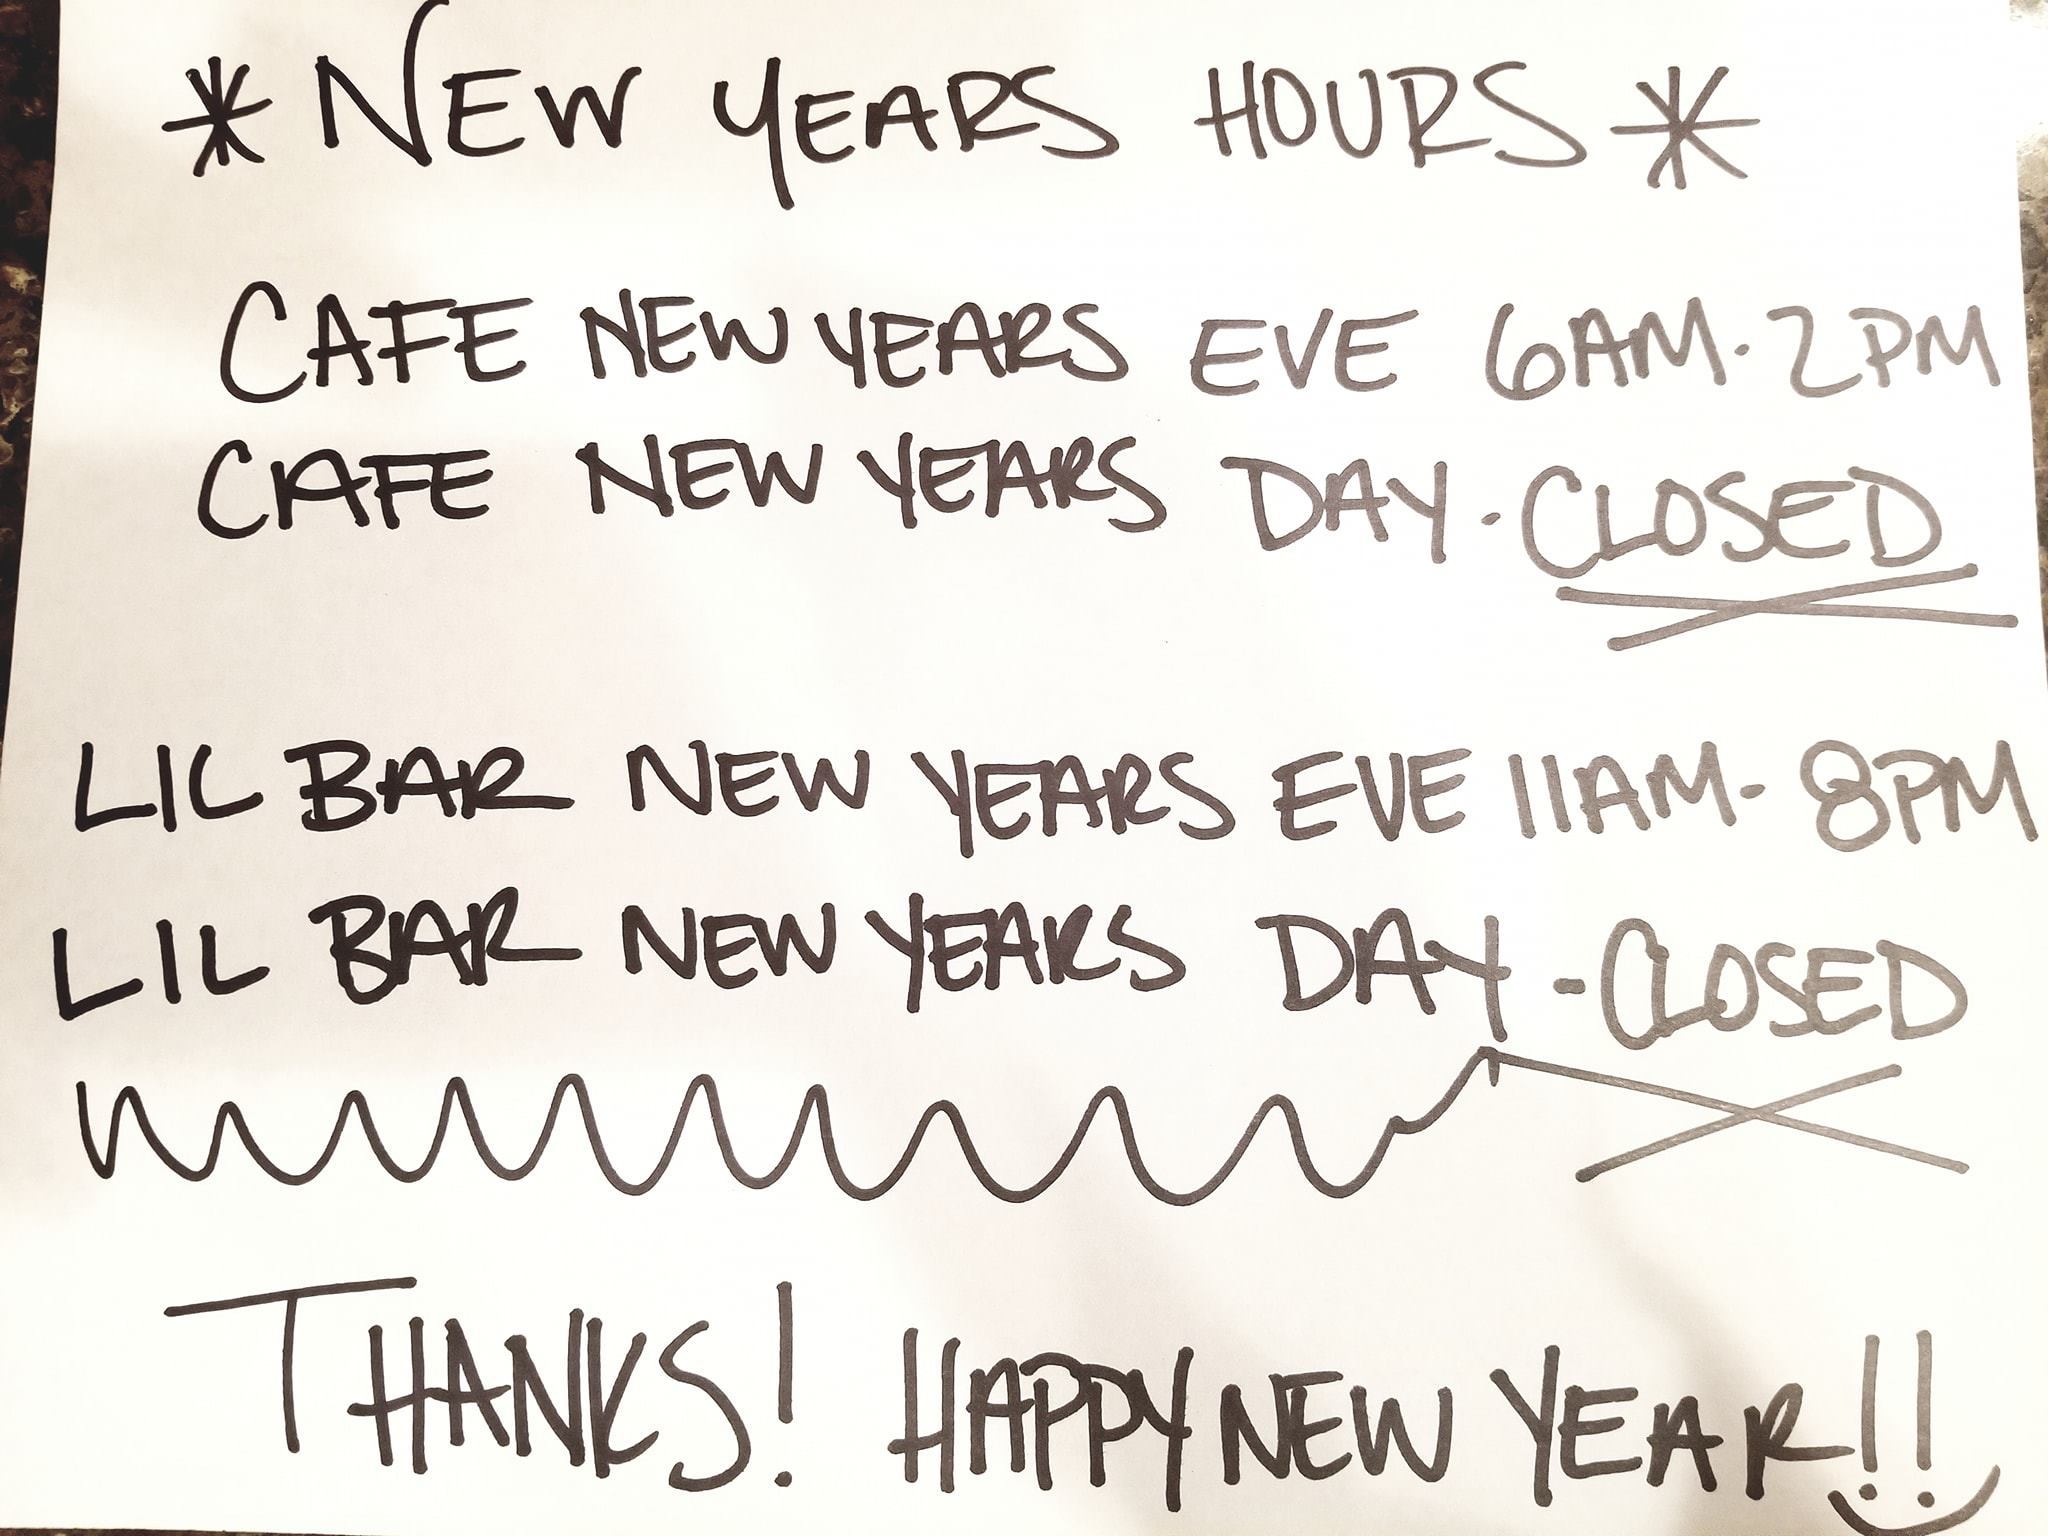 * NEW YEARS HOURS *
CAFE NEW YEARS EVE 6AM-2PM
CAFE NEW YEARS DAY-CLOSED
LIL BAR NEW YEARS EVE 11AM-8PM
LIL BAR NEW YEARS DAY-CLOSED
THANKS! HAPPY NEW YEAR!!